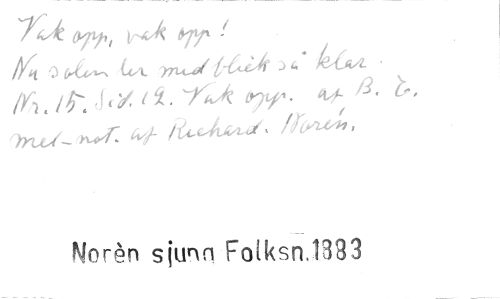 Vak opp, vak opp!
Nu solen ler med blick så klar.
Nr. 15. Sid. 12. Vak opp. af B. E.
mel-not. af Richard. Norén.
Norèn sjung Folksn.1883